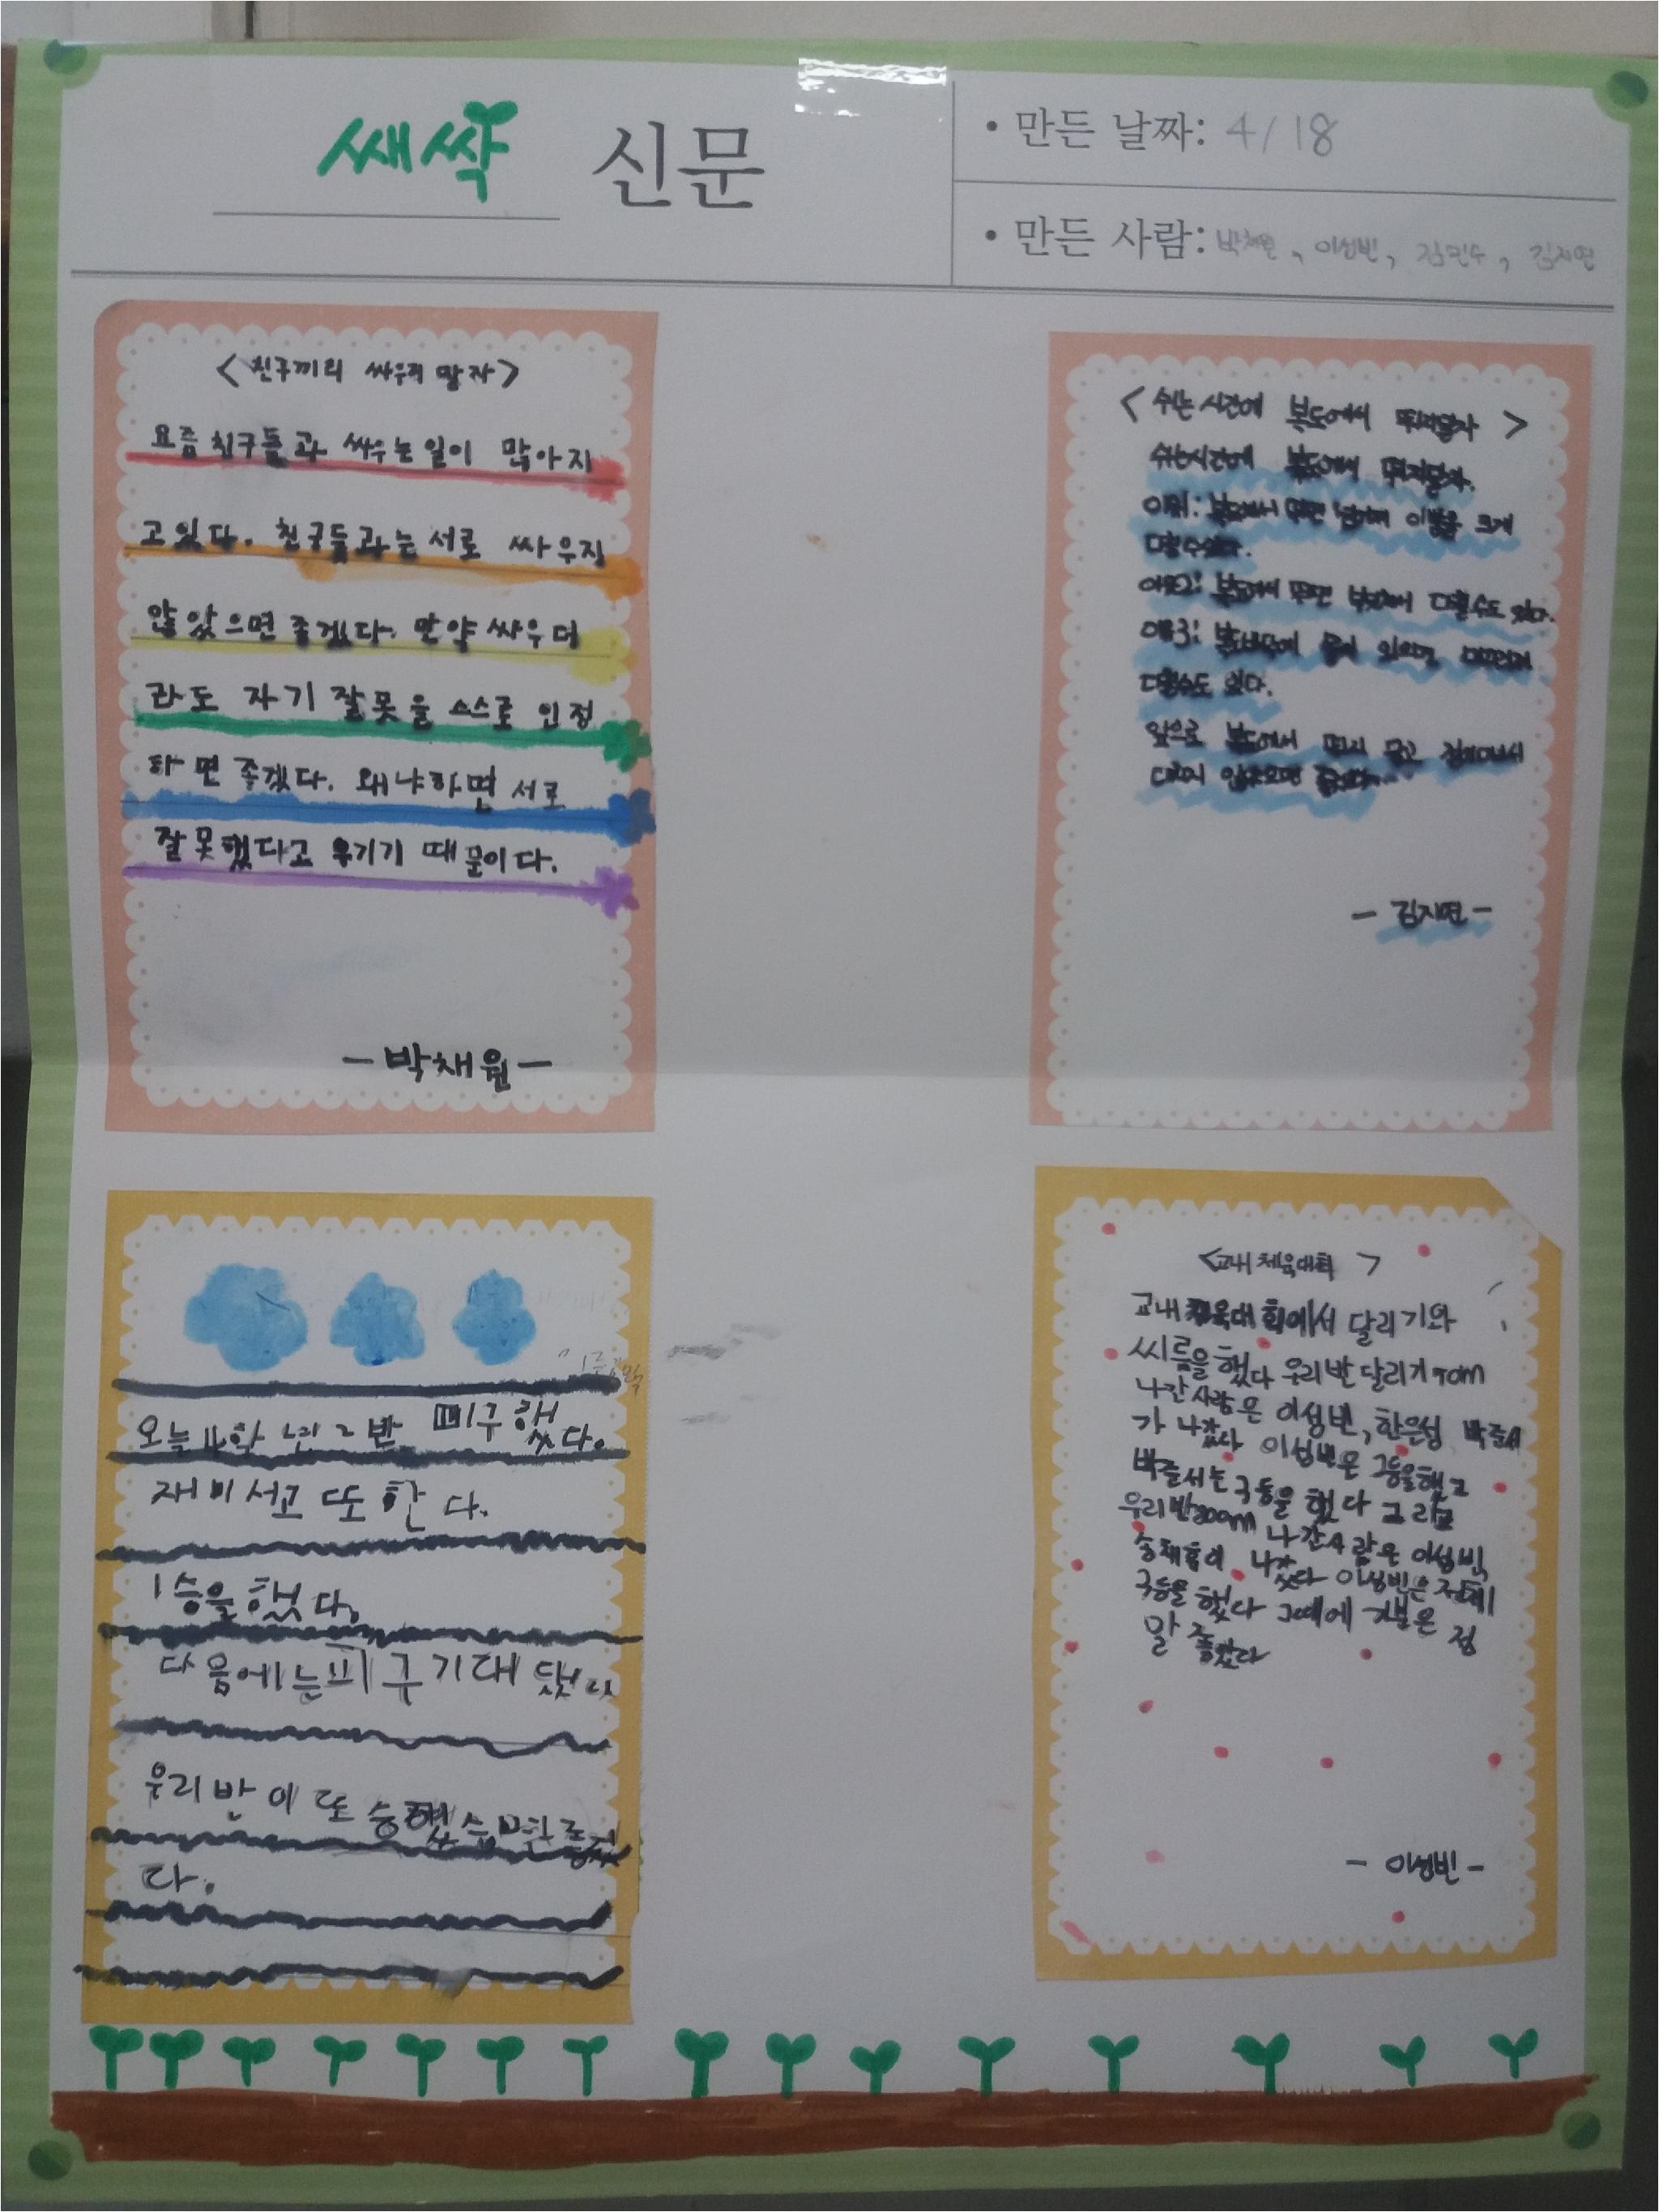 쌔싹 신문
• 만든 날짜: 4/18
• 만든 사람: 박채원, 이성빈, 김민수, 김지연
<친구끼리 싸우지 말자>
요즘 친구들과 싸우는 일이 많아지
고 있다. 친구들과는 서로 싸우지
않았으면 좋겠다. 만약 싸우더
라도 자기 잘못을 스스로 인정
하면 좋겠다. 왜냐하면 서로
잘못했다고 우기기 때문이다.
-박채원-
<쉬는 시간에 복도에서 뛰지말자>
쉬는시간에 복도에서 뛰지말자.
이유1: 복도에서 뛰면 넘어져 이빨을 크게
다칠수있다.
이유2: 복도에서 뛰면 부딪혀서 다칠수도 있다.
이유3: 복도바닥에 물이 있으면 미끄러져
다칠수도 있다.
앞으로 복도에서 뛰지 말고 걸어다녀서
다치지 않았으면 좋겠다.
-김지연-
오늘 4학년 2반 피구했다.
재미서고 또 한다.
1승을 했다.
다음에는 피구 기대 됐다
우리반이 또 승했습면
다.
<교내 체육대회>
교내 체육대회에서 달리기와
씨름을 했다 우리반 달리기 70m
나간사람은 이성빈, 한은성 박준서
가 나갔다 이성빈은 2등을했고
박준서는 3등을 했다 그리고
우리반 200m 나간사람은 이성빈,
송재협이 나갔다 이성빈은 전체
3등을 했다 그때에 기분은 정
말 좋았다
- 이성빈 -